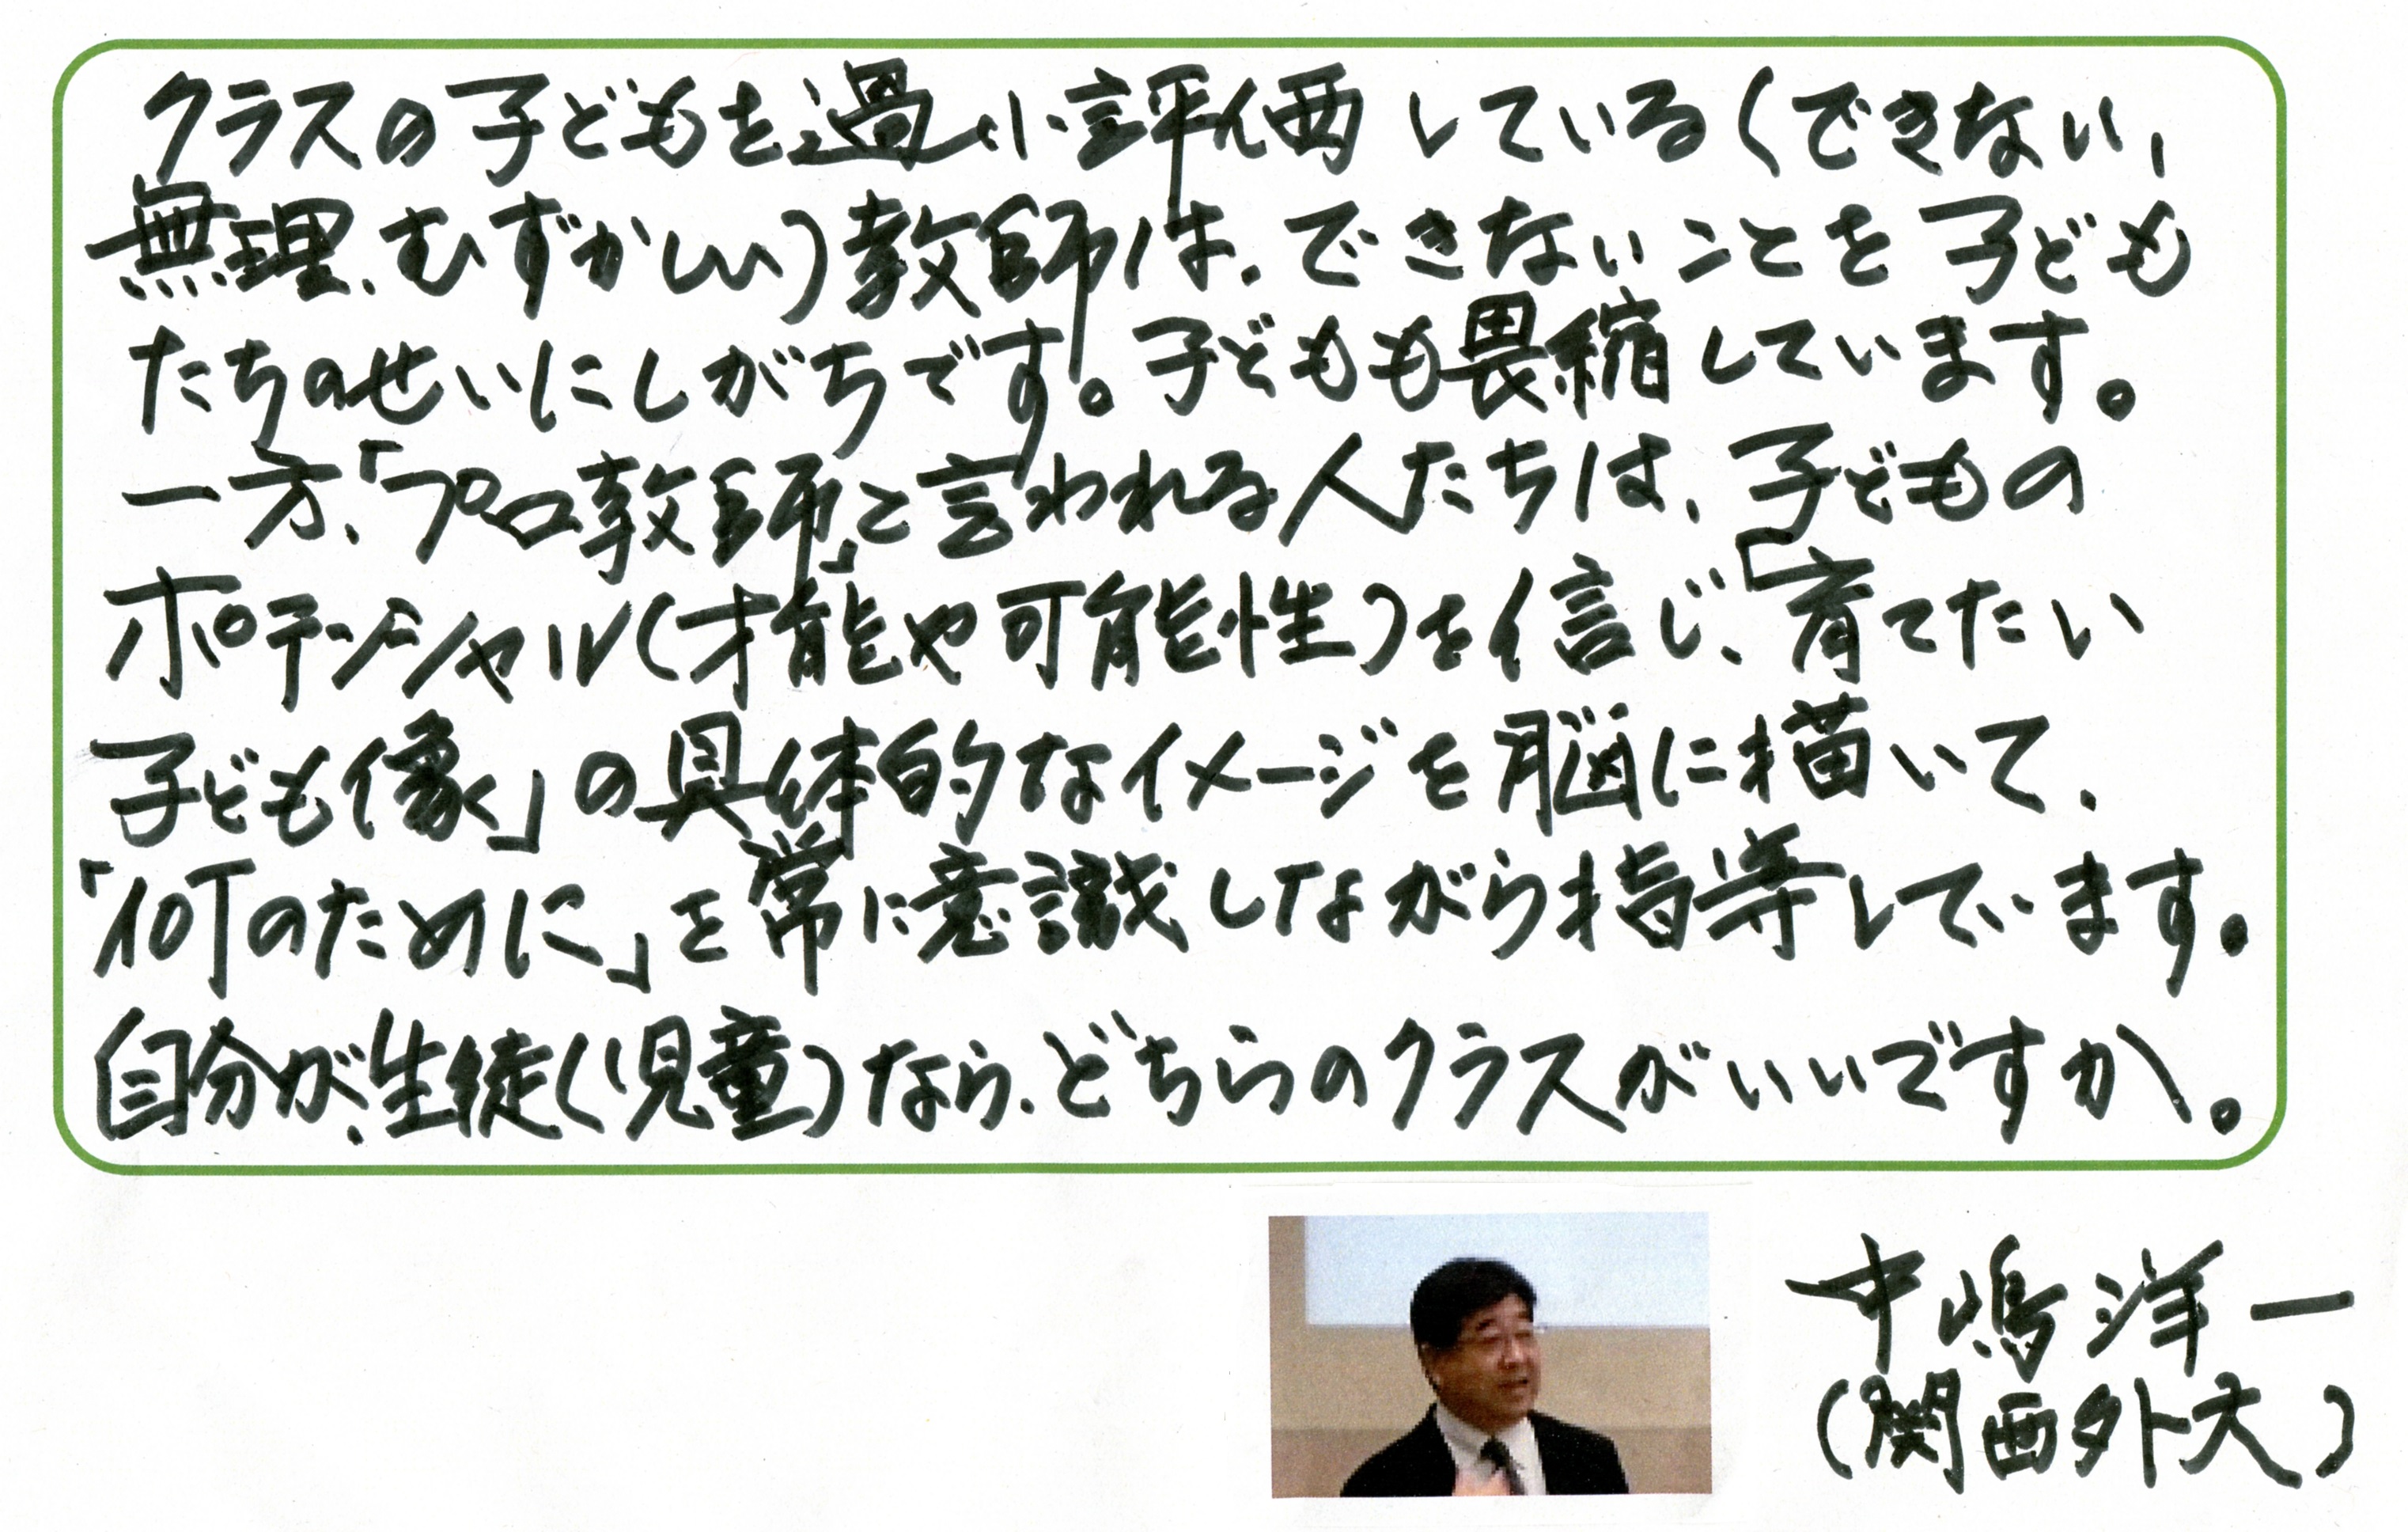 クラスの子どもを過小評価している(できない,
無理、むずかしい)教師は、できないことを子ども
たちのせいにしがちです。子どもも畏縮しています。
一方、「プロ教師」と言われる人たちは、子どもの
ポテンシャル(才能や可能性)を信じ、「育てたい
子ども像」の具体的なイメージを脳に描いて、
「何のために」を常に意識しながら指導しています。
自分が、生徒(児童)なら、どちらのクラスがいいですか。
中嶋洋一
(関西外大)